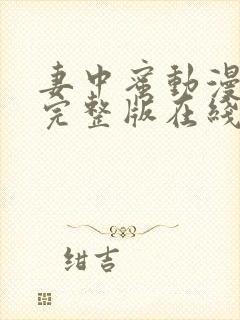 妻中蜜動漫
完整版在綫
绀吉